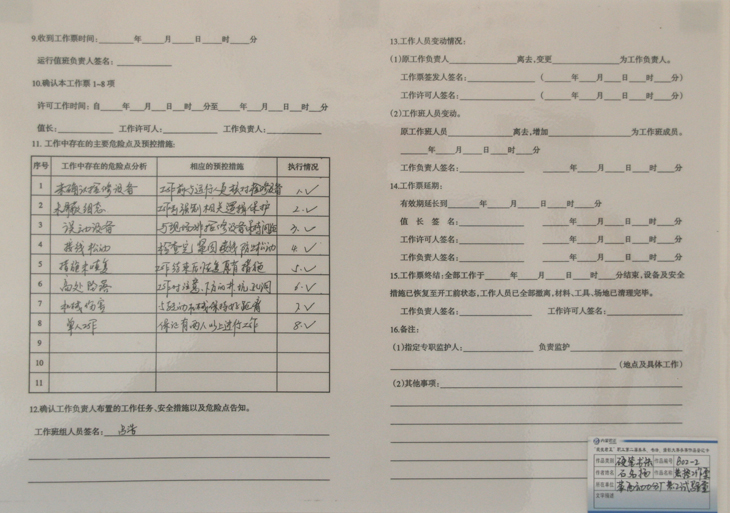 9.收到工作票时间:____年____月____日____时____分
运行值班负责人签名:____
10.确认本工作票 1-8 项
许可工作时间: 自____年____月____日____时____分至____年____月____日____时____分
值长:____ 工作许可人:____ 工作负责人:____
11. 工作中存在的主要危险点及预控措施:
序号 工作中存在的危险点分析 相应的预控措施 执行情况
1 未确认检修设备 工作前与运行人员核对检修设备 1.✓
2 未解组态 工作前强制相关逻辑保护 2.✓
3 误动设备 与现场非检修设备 3.✓
4 接线松动 检查完紧固接线防止松动 4.✓
5 措施未恢复 工作结束后恢复原有措施 5.✓
6 高处坠落 工作时注意下方的井坑孔洞 6.✓
7 机械伤害 与转动机械保持距离 7.✓
8 单人工作 保证有两人以上进行工作 8.✓
9
10
11
12.确认工作负责人布置的工作任务、安全措施以及危险点告知。
工作班组人员签名:
13.工作人员变动情况:
(1)原工作负责人____离去,变更____为工作负责人。
工作票签发人签名:____(____年____月____日____时____分)
工作许可人签名:____(____年____月____日____时____分)
(2)工作班人员变动。
原工作班人员____离去,增加____为工作班成员。
____年____月____日____时____分
工作负责人签名:____ 工作许可人签名:____
14.工作票延期:
有效期延长到____年____月____日____时____分
值 长 签 名:____ ____年____月____日____时____分
工作许可人签名:____ ____年____月____日____时____分
工作负责人签名:____ ____年____月____日____时____分
15.工作票终结:全部工作于____年____月____日____时____分结束,设备及安全
措施已恢复至开工前状态,工作人员已全部撤离,材料、工具、场地已清理完毕。
工作负责人签名:____ 工作许可人签名:____
16.备注:
(1)指定专职监护人:____ 负责监护____
____(地点及具体工作)
(2)其他事项:____
作品类别 硬笔书法 作品编号 B02-2
作者姓名 石名扬 作品名称
所在单位